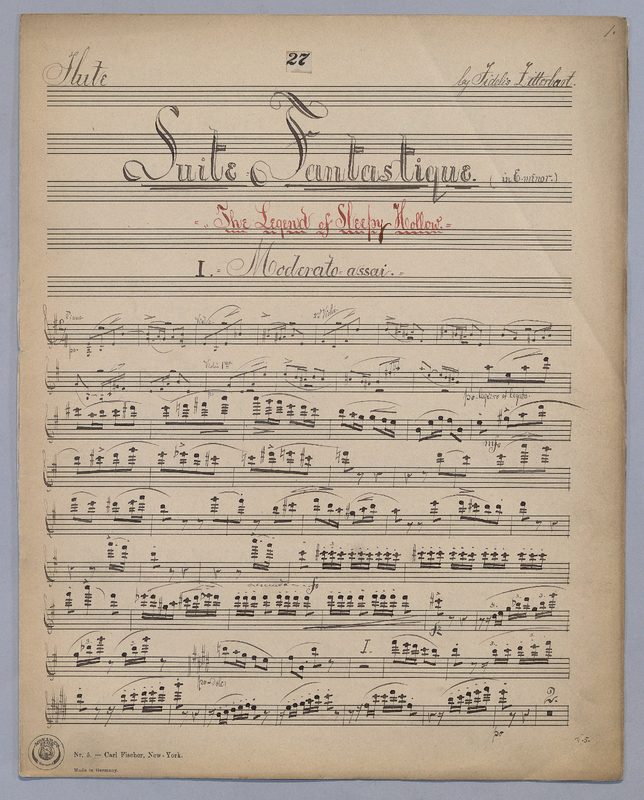 1.
Flute
27
by Fidelis Zitterbart.
Suite Fantastique. (in E minor.)
"The Legend of Sleepy Hollow."
I. Moderato assai.
Piano
Viola
2d Violin
Violin 1mo
po. legiero et legato.
mfo
crescendo
fo
I.
2.
po
Nr. 5. — Carl Fischer, New-York.
Made in Germany.